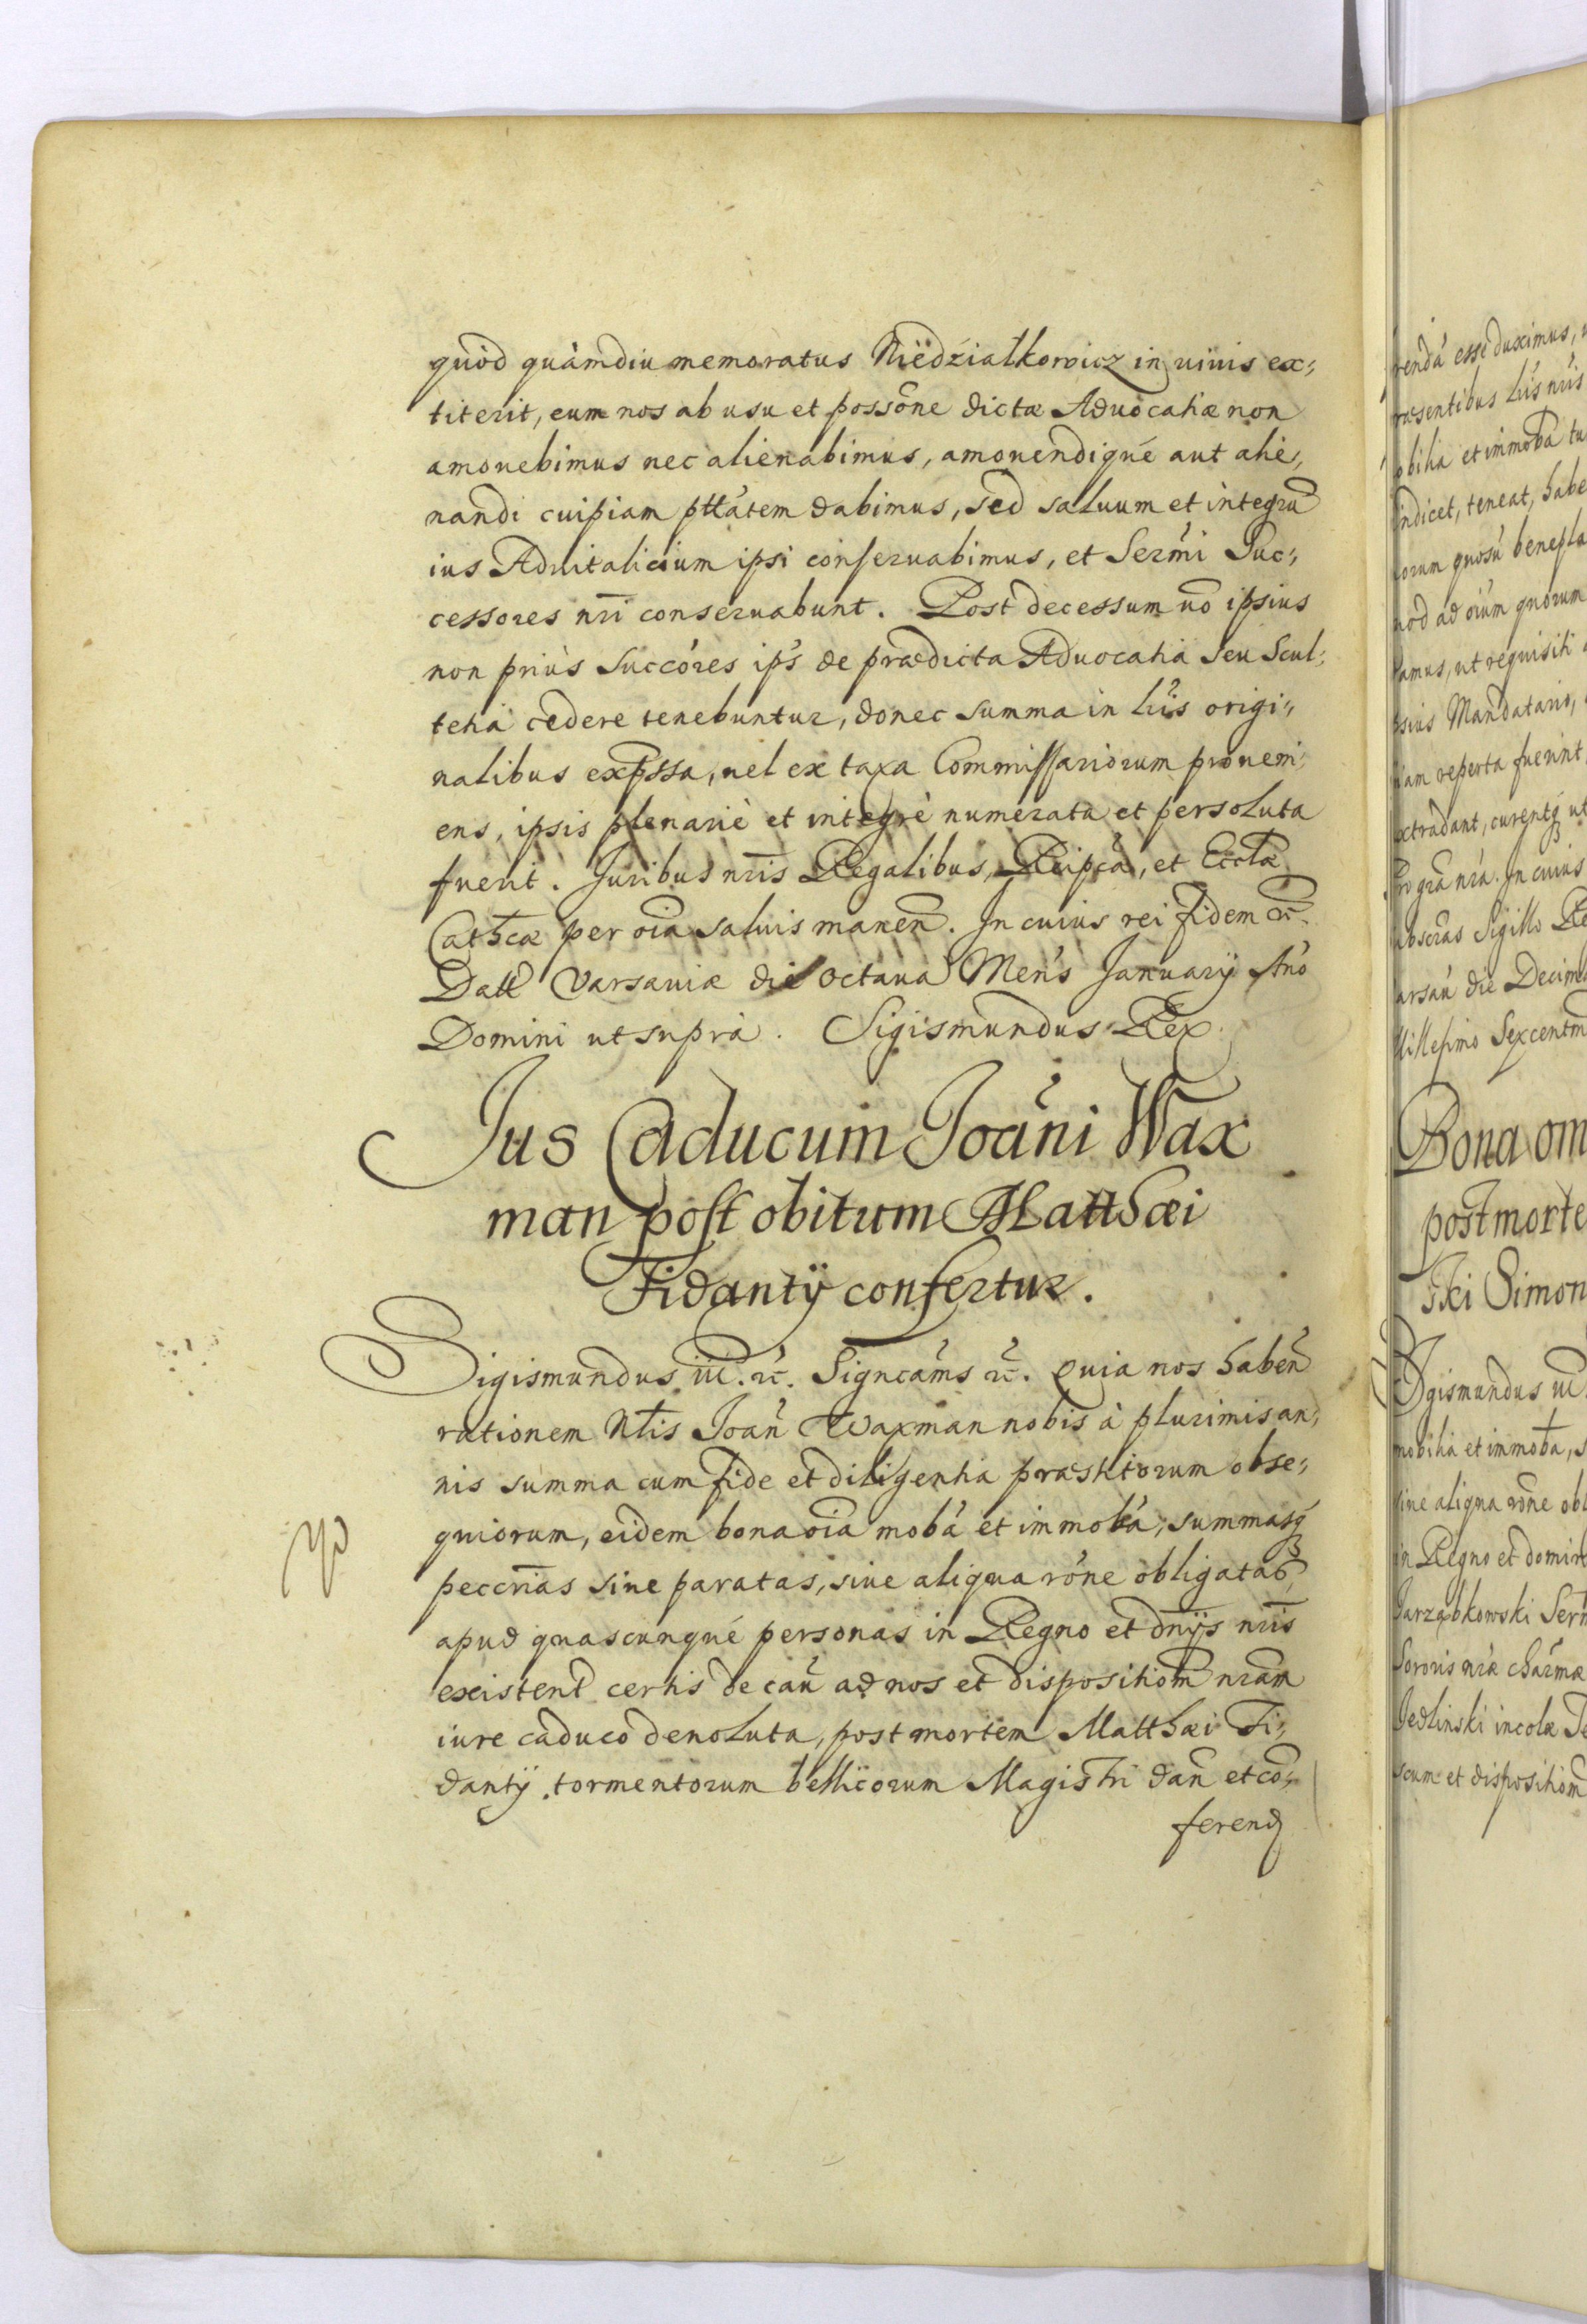 quòd quàmdiu memoratus Niedzialkowicz in uiuis ex,
titerit, eum nos ab usu et possōne dictæ Aduocatiæ non
amouebimus nec alienabimus, amouendiqué aut alie,
nandi cuipiam pttátem dabimus, sed saluum et integrū
ius Aduitalicium ipsi conseruabimus, et Sermi Suc,
cessores nri conseruabunt. Post decessum uō ipsius
non priùs Succóres ips de prædicta Aduocatia seu Scul,
tetia cedere tenebuntur, donec summa in lris origi,
nalibus expssa, uel ex taxa Commissariorum proueni,
ens, ipsis plenariè et integrè numerata et persoluta
fuerit. Juribus nris Regalibus, Reipcæ, et Ecclæ
Cathcæ per oia saluis manen. In cuius rei fidem &c.
Datt Varsauiæ die octaua Mens January Ano
Domini ut suprà. Sigismundus Rex.
Jus Caducum Joāni Wax
man post obitum Matthæi
Fidantÿ confertur.
Sigismundus iii. &c. Signcams &c. Quia nos haben
rationem Ntis Joan Waxman nobis à plurimis an,
nis summa cum fide et diligentia præstitorum obse,
quiorum, eidem bona oia moba et immoba, summasq
peccrias siue paratas, siue aliqua rone obligatas,
apud quascunqué personas in Regno et dnÿs nris
existent certis de cau ad nos et dispositiom nram
iure caduco deuoluta, post mortem Matthæi Fi,
dantÿ tormentorum bellicorum Magistri dan et co,
ferend
rendā esse duximus,
ræsentibus lris nris
obilia et immoba tu
indicet, teneat, habe
orum quosu benepla
uod ad oium quorum
amus, ut requisiti
sius Mandatario,
uam reperta fuerint
extradant, curentq ut
pro gra nra. In cuius
ubscras Sigillo Re
arsau die Decima
Millesimo Sexcentm
Bona om
post morte
ski Simon
Sigismundus iii
mobilia et immoba, s
siue aliqua rone obl
in Regno et domin
Jarząbkowski Ser
Sororis nræ charmæ
Jedlinski incolæ
scum et dispositiom